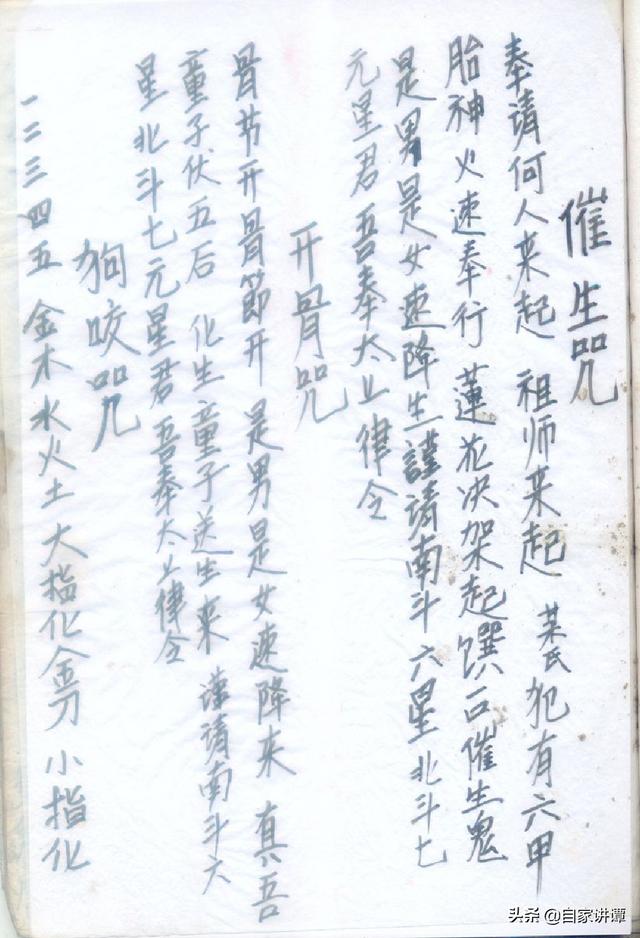 催生咒
奉请何人来起 祖师来起 某氏犯有六甲
胎神火速奉行 蓮花决架起馔曰催生鬼
是男是女速降生謹请南斗六星北斗七
元星君吾奉太上律令
开骨咒
骨节开骨節开 是男是女速降来 真吾
童子伏五后 化生童子送生来 谨请南斗六
星北斗七元星君吾奉太上律令
狗咬咒
一二三四五 金木水火土 大指化金刀 小指化
头条 @自家讲蕈